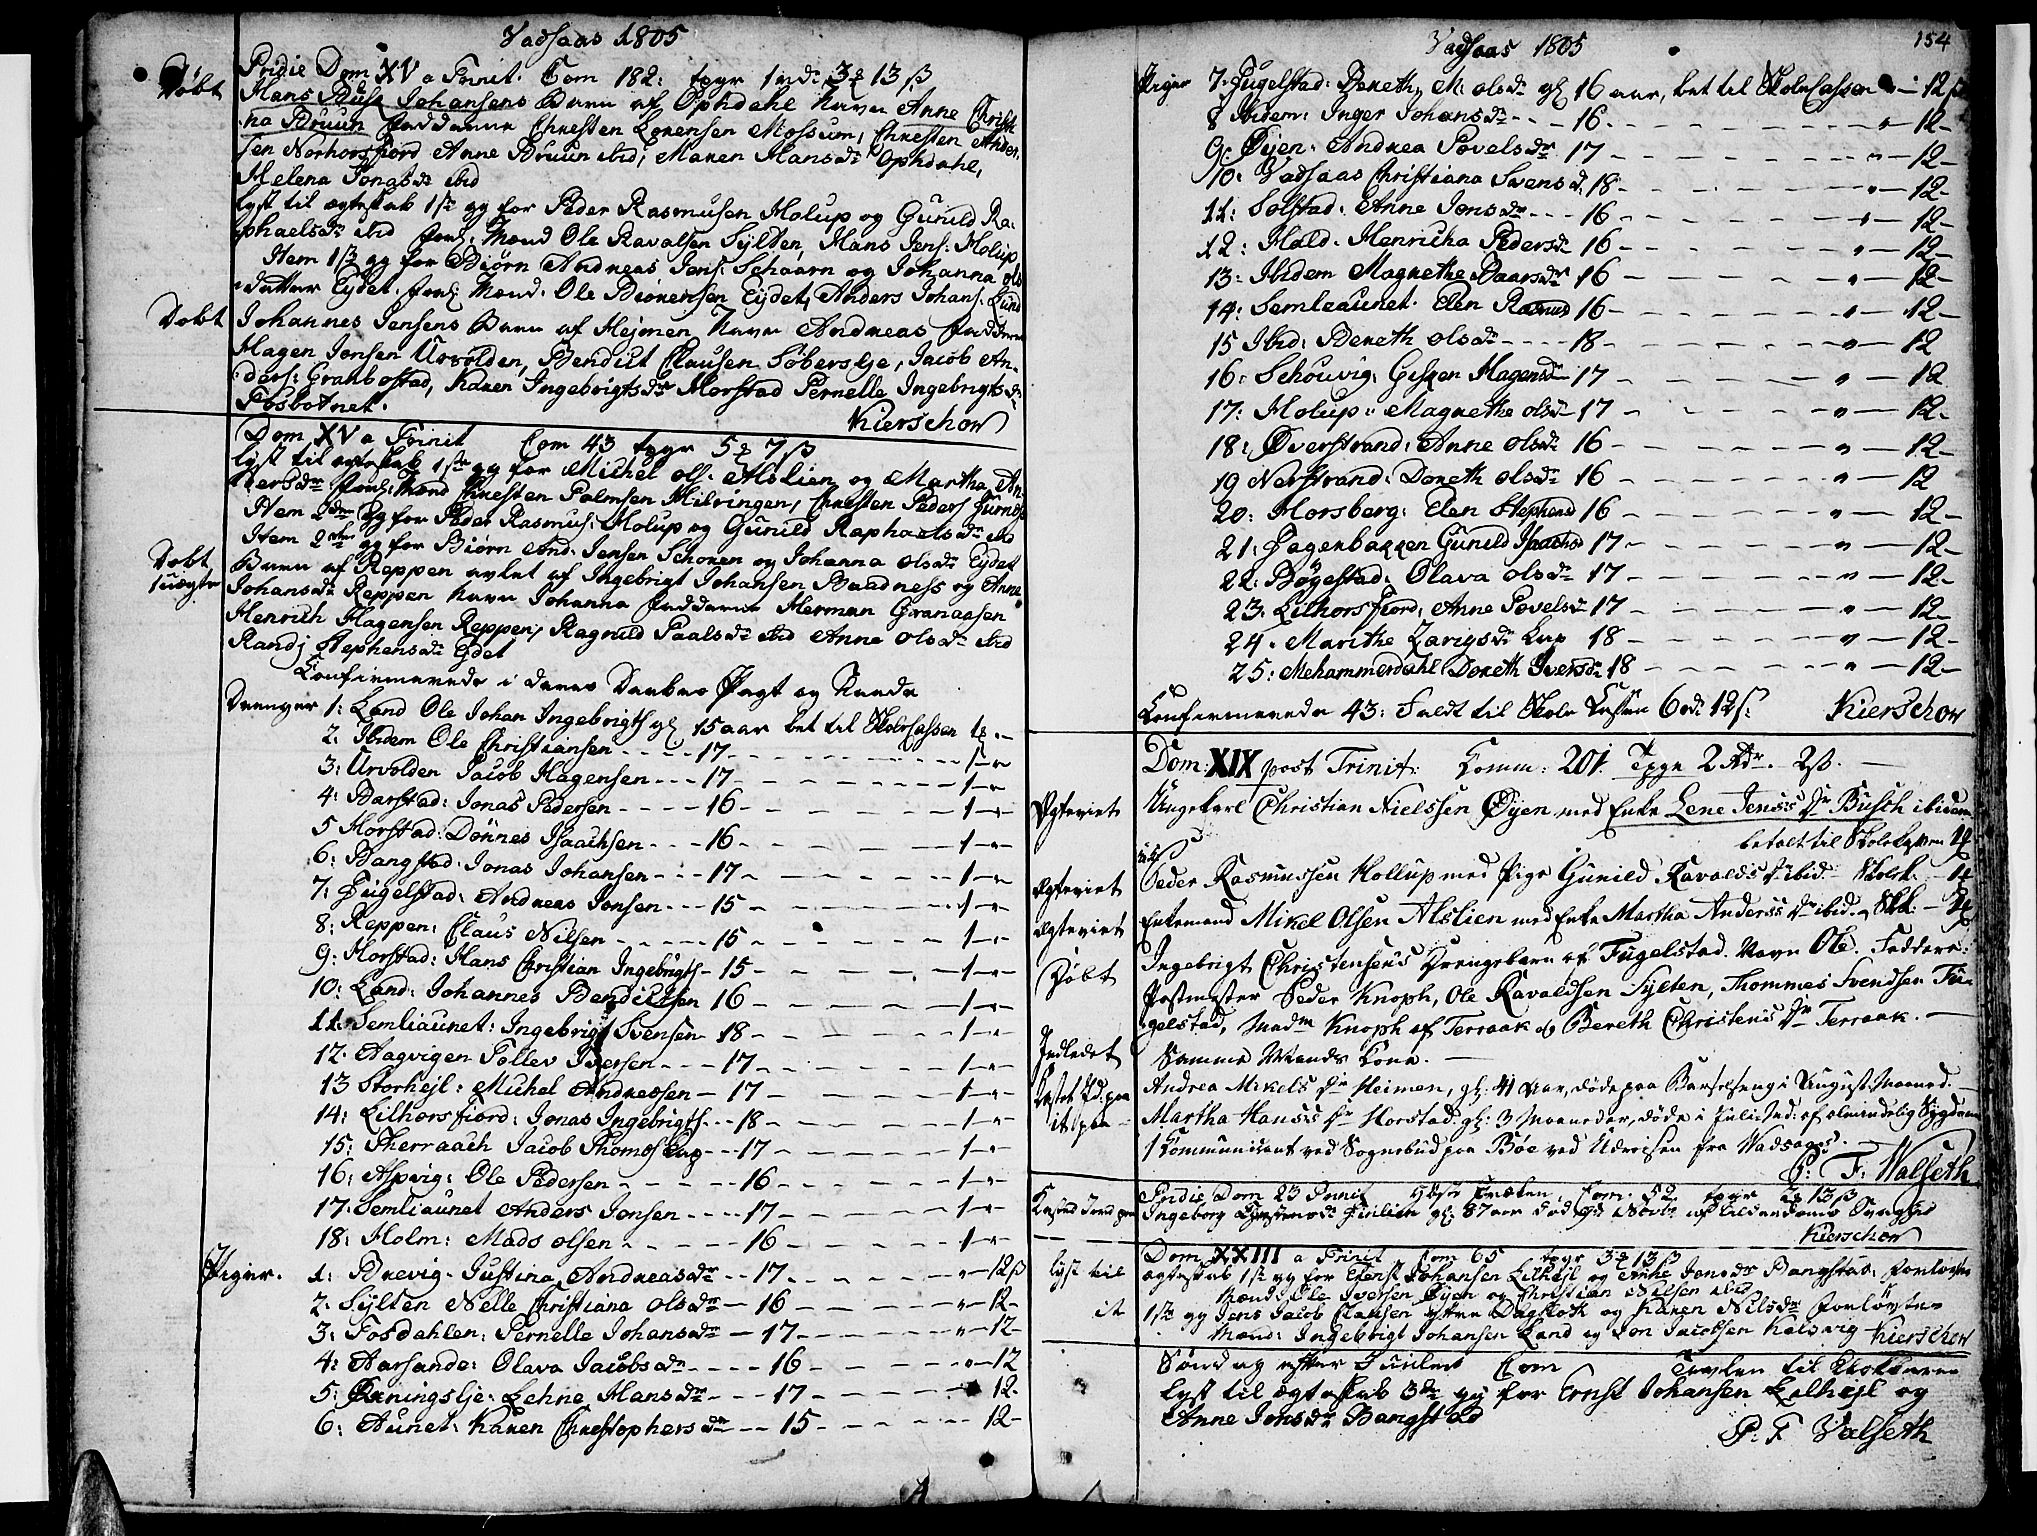 Vadsaas 1805
Døbt
Pridie Dom XV a Trinit. Com 182: tavr 1 rdr 3 ₰ 13 ß
Hans Bütz Johansens Barn af Ophdahl Navn Anne Christi-
na Bruun Faddere Christen Lorensen Mossum, Christen Ander-
sen Norhorsfiord Anne Bruun ibid, Maren Hansdr Ophdahl,
Helena Jonasdr ibid
lyst til ægteskab 1ste gg for Peder Rasmusen Holup og Gunild Ra-
phaelsdr ibid forl. Mænd Ole Ravalsen Sylten, Hans Jens. Holup
Item 1ste gg for Biørn Andreas Jens. Schaarn og Johanna ols
datter Eydet. forl. Mænd. Ole Biørensen Eydet, Anders Johans. Lund
Døbt
Johannes Jensens Barn af Hejmen Navn Andreas Faddere
Hagen Jonsen Urvolden, Bendict Clausen Søberslje, Jacob An-
ders. Granbostad, Karen Ingebrigtsdr Horstad Pernelle Ingebrigtsdr
Fosbotnet.
Kierschow
Dom XV a Trinit Com 43 tavr 5 ₰ 7 ß
lyst til ægteskab 1ste gg for Michel ols. Alslien og Martha An-
dersdr forl. Mænd Christen Palmsen Hilringen, Christen Peders
Item 2den gg for Peder Rasmus. Holup og Gunild Raphaelsdr ibid
Item 2den gg for Biørn And. Jensen Schoren og Johanna olsdr Eydet
Døbt
1 uægte
Barn af Reppen avlet af Ingebrigt Johansen Baadness og Anne
Johansdr Reppen Navn Johanna Faddere Herman Granaasen
Henrich Hagensen Reppen, Ragnild Paalsdr ibid Anne olsdr ibid
Randj Stephensdr Eydet
Confirmerede i deres Daabes Pagt og Naade
Drenger 1: Land Ole Johan Ingebrigts gl 15 aar bet til Skolecassen 1 ₰ -
2: Ibidem Ole Christiansen - - - 17 - - - 1 - "
3: Urvolden Jacob Hagensen - - - 17 - - - 1 - "
4: Barstad: Jonas Pedersen - - - 16 - - - 1 - "
5 Horstad: Dønnes Isaachsen - - - 16 - - - 1 - "
6: Bangstad: Jonas Johansen - - - 17 - - - 1 - "
7: Fugelstad: Andreas Jonsen - - - 15 - - - 1 - "
8: Reppen: Claus Nilsen - - - 15 - - - 1 - "
9: Horstad: Hans Christian Ingebrigts - 15 - - - 1 - "
10: Land: Johannes Bendictsen 16 - - - 1 - "
11: Semliaunet: Ingebrigt Svensen 18 - - - 1 - "
12: Aagvigen Tollev Iversen - - - 17 - - - 1 - "
13 Storhejl: Michel Andreasen - 17 - - - 1 - "
14: Lilhorsfiord: Jonas Ingebrigts - - 18 - - - 1 - "
15: Therraach Jacob Thomes Lap - - 17 - - - 1 - "
16: Aspvig: Ole Pedersen - - - 16 - - - 1 - "
17: Semliaunet Anders Jonsen - - - 17 - - - 1 - "
18: Holm: Mads olsen - - - 16 - - - 1 - "
Piger. 1: Brevig. Justina Andreasdr - - 17 - - - " - 12 ß
2: Sylten Nelle Christiana olsdr - 16 - - - " - 12 -
3: Fosdahlen: Pernelle Johansdr - 17 - - - " - 12 -
4: Aarsande: Olava Jacobsdr - - - 16 - - - " - 12
5: Økningslje: Lehne Hansdr - - - 17 - - - 12 -
6: Aunet: Karen Christophersdr - - 15 - - - 12 -
Vadsaas 1805
154
Piger 7. Fugelstad: Bereth M: olsdr gl 16 aar, bet til Skolecassen " - 12 ß
8 Ibidem: Inger Johansdr - - - 16 - - - " - 12 -
9: Øyen: Andrea Povelsdr 17 - - - " - 12 -
10: Vadsaas Christiana Svensd. 18 - - - " - 12 -
11: Solstad: Anne Jonsdr - - - 16 - - - " - 12 -
12: Hald: Henricha Pedersdr 16 - - - " - 12 -
13: Ibidem Magrethe Baarsdr 16 - - - " - 12 -
14: Semleaunet: Elen Rasmusd 16 - - - " - 12 -
15 Ibid: Bereth olsdr - - - 18 - - - " - 12
16: Schouvig: Gisken Hagensdr 17 - - - " - 12
17: Holup: Magrethe olsdr 17 - - - " - 12 -
18: Øverstrand: Anne olsdr 16 - - - " - 12 -
19 Nerstrand: Doreth olsdr 16 - - - " - 12
20: Horsberg: Elen Stephensd 16 - - - " - 12 -
21: Fagerbakken Gunild Isaachsd 17 - - - " - 12 -
22: Bøgestad: Olava olsdr 17 - - - " - 12 -
23: Lilhorsfiord: Anne Povelsdr 17 - - - " - 12 -
24. Marithe Zarigsdr Lap 18 - - - " - 12 -
25: Mehammerdahl Doreth Iversdr 18 - - - " - 12 -
Confirmerede 43: Faldt til Skole Cassen 6 rd: 12 ß: Kierschow
Dom: XIX post Trinit: Comm: 201. Tavr 2 Rdr. 2 ß. -
Ægteviet
Ungekarl Christian Nielssen Øyen med Enke Lene Jensis Dr Busch ibidem
betalt til Skolekassen 1 ₰
Ægteviet
Peder Rasmussen Hollup med Pige Gunild Ravalds Dr ibid. Skolek. - 1 ₰
Ægteviet
Enkemand Mikel Olsen Alslien med Enke Martha Anderss Dr ibid. Skk: - 1 ₰
Døbt
Ingebrigt Christensens Drengebarn af Fugelstad. Navn Ole. Faddere:
Postmester Peder Knoph, Ole Ravaldsen Sylten, Thommes Svendsen Fu-
gelstad, Madm Knoph af Terraak & Bereth Christens Dr Terraak. -
Indledet
Samme Mands Kone. -
Kastet Jd. paa
Andrea Mikels Dr Heimen, gl: 41 Aar, døde paa Barselseng i August Maaned. -
it paa -
Martha Hanss Dr Horstad. gl: 3 Maaneder, døde i Juli Md: af almindelig Sygdom
1 Communicant ved Sognebud paa Bøe ved Udreisen fra Wadsaas. -
P: F: Walseth
Pridie Dom 23 Trinit Com. 52 tavr 1 ₰ 13 ß
Kasted Jord paa
Ingeborg gl: 87 aar død
Kierschow
Dom XXIII a Trinit Com 65 tavr 3 ₰ 13 ß
lyst til
ægteskab 1ste gg for Ernst Johansen Lilhejl og Anne Jonsdr Bangstad, forlovte
Mænd: Ole Iversen Øyen og Christian Nilsen ibid
it
1ste gg Jens Jacob Clausen Dagslott og Karen Nilsdr forløvtes
Mænd: Ingebrigt Johansen Land og Jon Jacobsen Kalsvig Kierschow
Søndag efter Com Tavlen til Klokkeren
lyst til ægteskab 3die gg for Ernst Johansen Lilhejl og
Anne Jonsdr Bangstad
P. F Valseth